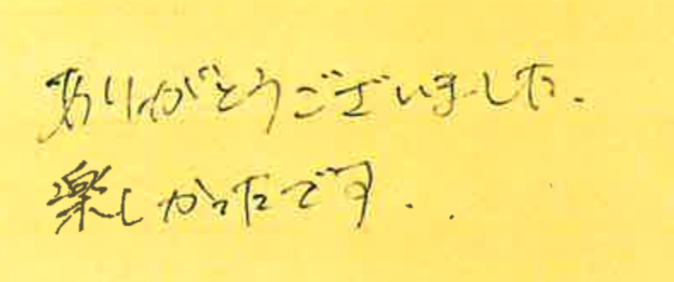 ありがとうございました.
楽しかったです..